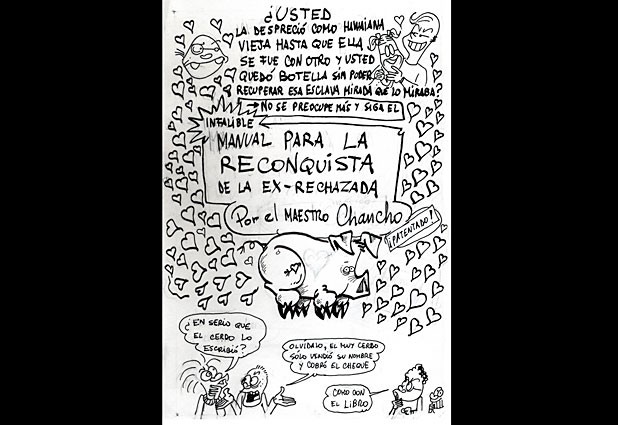 ¿USTED
LA DESPRECIÓ COMO HAWAIANA
VIEJA HASTA QUE ELLA
SE FUE CON OTRO Y USTED
QUEDÓ BOTELLA SIN PODER
RECUPERAR ESA ESCLAVA MIRADA QUE LO MIRABA?
NO SE PREOCUPE MÁS Y SIGA EL
INFALIBLE
MANUAL PARA LA
RECONQUISTA
DE LA EX-RECHAZADA
Por el MAESTRO Chancho
¡PATENTADO!
¿EN SERIO QUE
EL CERDO LO
ESCRIBIÓ?
OLVIDALO, EL MUY CERDO
SÓLO VENDIÓ SU NOMBRE
Y COBRÓ EL CHEQUE
COMO CON
EL LIBRO